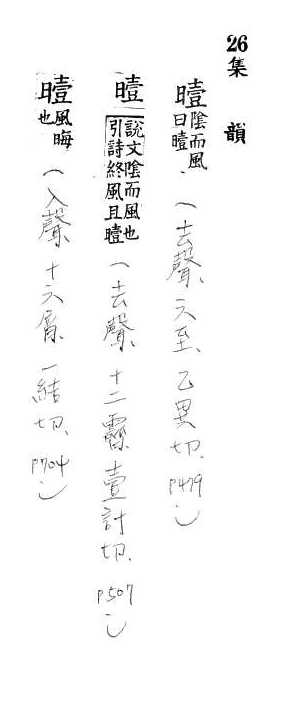 26集韻
曀陰而風日曀（去聲、六至、乙異切、P479）
曀說文陰而風也引詩終風且曀（去聲、十二霽、壹計切、P507）
曀風晦也（入聲、十六屑、一結切、P704）